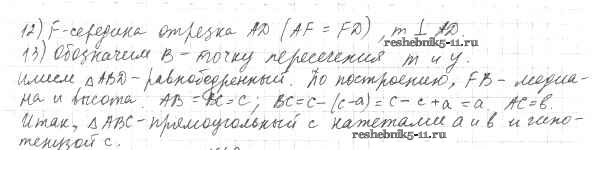 12) F-середина отрезка AD (AF = FD), m ⊥ AD.
reshebnik5-11.ru
13) Обозначим B-точку пересечения m и y.
имеем △ABD-равнобедренный. По построению, FB-медиа-
на и высота. AB = BC = c; BC = c-(c-a) = c-c+a = a. AC = b.
Итак, △ABC-прямоугольный с катетами a и b и гипо-
reshebnik5-11.ru
тенузой c.